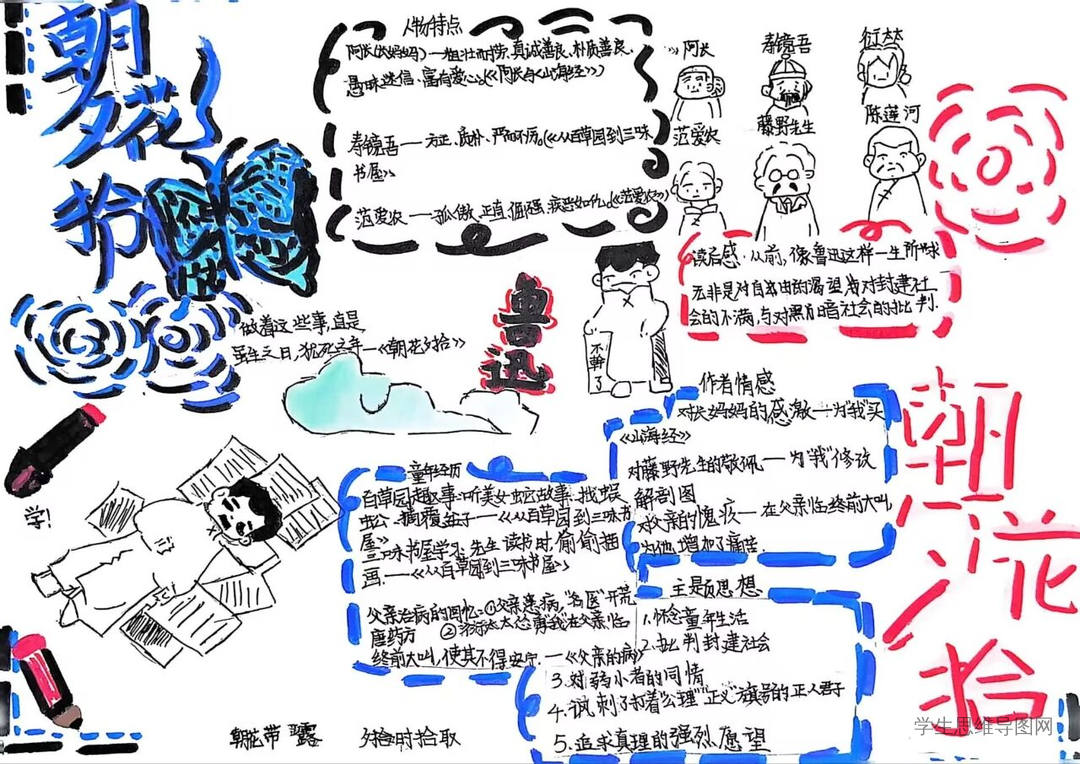 朝
夕花
拾
人物特点
阿长(长妈妈)—粗壮而矮,真诚善良、朴质善良、
愚昧迷信、富有爱心。(《阿长与《山海经》》)
寿镜吾——方正、质朴、严而不厉。(《从百草园到三味
书屋》)
范爱农——孤傲、正直、倔强、疾恶如仇。(《范爱农》)
阿长
寿镜吾
衍太太
范爱农
藤野先生
陈莲河
读后感:从前,像鲁迅这样一生所求
无非是对自由的渴望对封建社
会的不满,与对黑暗社会的批判.
做着这些事,直是
虽生之日,犹死之年—《朝花夕拾》
鲁迅
不幹了
作者情感
对长妈妈的感激—为"我"买
《山海经》
对藤野先生的敬佩—为"我"修改
解剖图
对父亲的愧疚—在父亲临终前大叫
为他增加了痛苦.
童年经历
百草园趣事:听美女蛇故事、找蜈
蚣、摘覆盆子——《从百草园到三味书
屋》
三味书屋学习:先生读书时,偷偷描
画.——《从百草园到三味书屋》
父亲治病的回忆:①父亲患病,"名医"开荒
唐药方 ②衍太太怂恿"我"在父亲临
终前大叫,使其不得安宁.—《父亲的病》
主题思想
1.怀念童年生活
2.批判封建社会
3.对弱小者的同情
4.讽刺了打着"公理""正义"旗号的正人君子
5.追求真理的强烈愿望
学!
朝花带露
夕拾时拾取
朝
夕花
拾
学生思维导图网